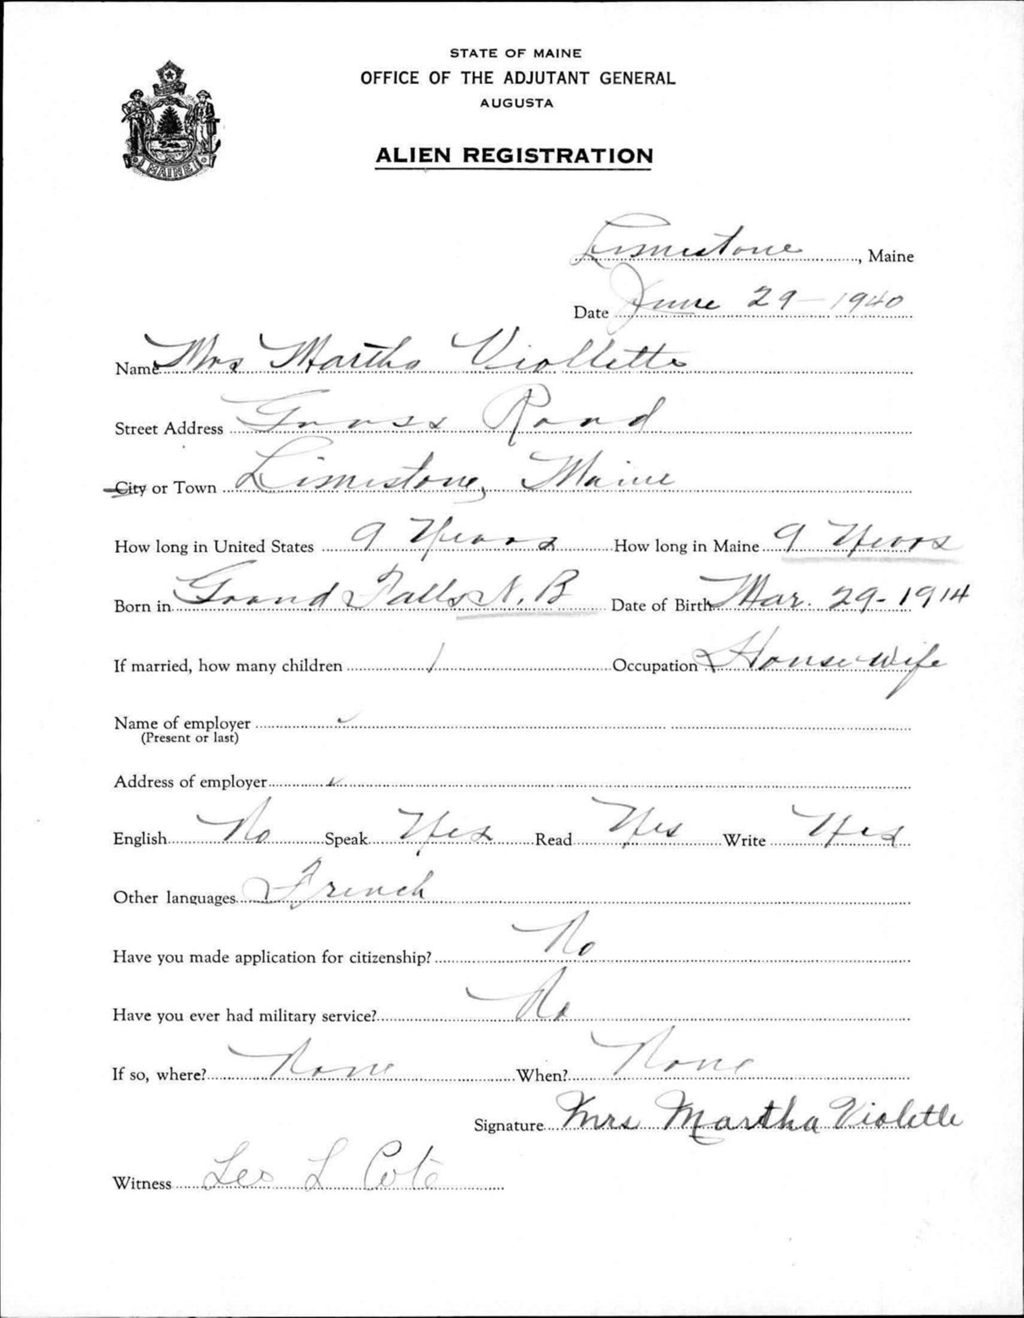 STATE OF MAINE
OFFICE OF THE ADJUTANT GENERAL
AUGUSTA
ALIEN REGISTRATION
MAINE
Limestone, Maine
Date June 29 - 1940
Name Mrs Martha Viollette
Street Address Grass Road
City or Town Limestone, Maine
How long in United States 9 Years How long in Maine 9 Years
Born in Grand Falls N.B Date of Birth Mar. 29-1914
If married, how many children 1 Occupation House wife
Name of employer
(Present or last)
Address of employer
English No Speak Yes Read Yes Write Yes
Other languages French
Have you made application for citizenship? No
Have you ever had military service? No
If so, where? None When? None
Signature Mrs Martha Violette
Witness Leo L Cote